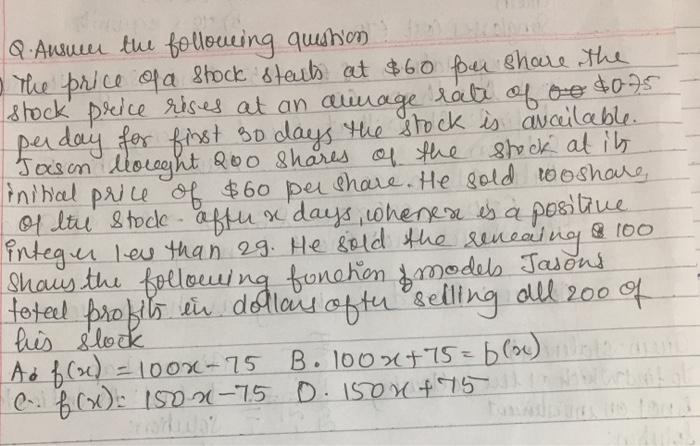 Q. Answer the following question
The price of a stock starts at $60 per share. The
stock price rises at an average rate of $0.75
per day for first 30 days the stock is available.
Jason bought 200 shares of the stock at its
initial price of $60 per share. He sold 100 share
of the stock. after x days, where x is a positive
integer less than 29. He sold the remaining 100
Shares the following function models Jasons
total profits in dollars after selling all 200 of
his stock
A. f(x) = 100x - 75 B. 100x + 75 = b(x)
C. f(x) = 150x - 75 D. 150x + 75